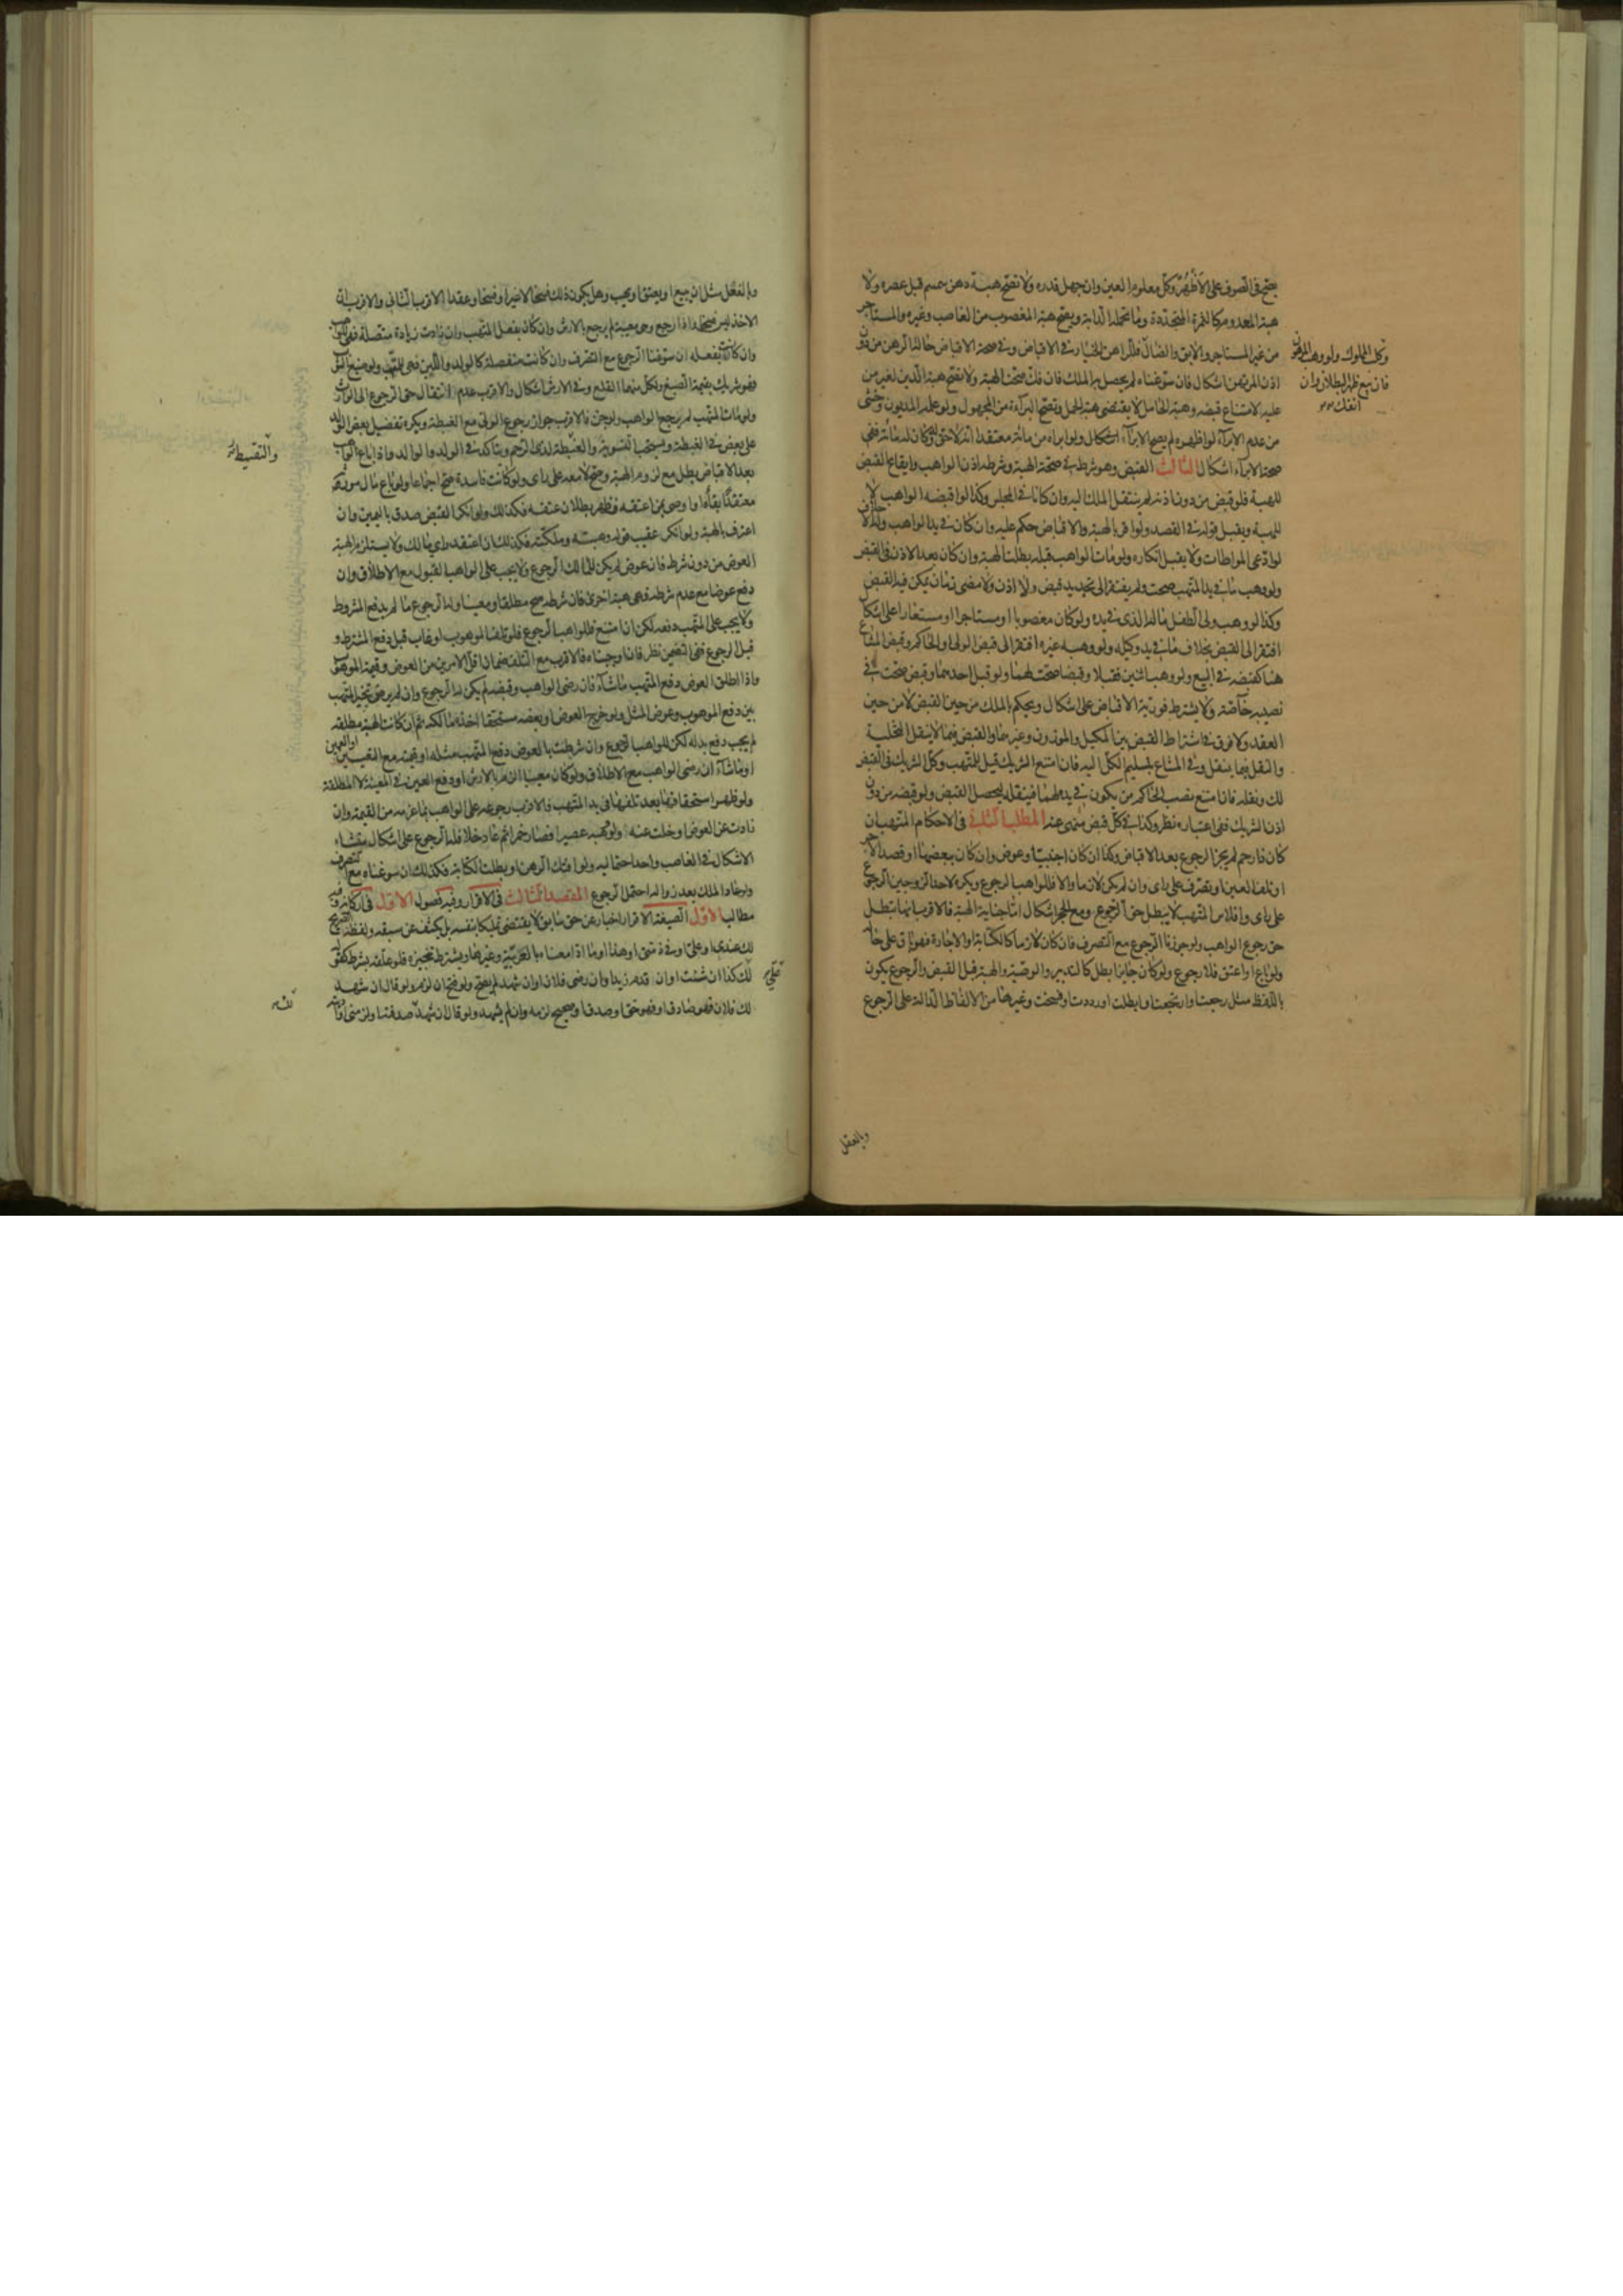 يصح في الصوف على الاظهر وكل معلوم العين وان جهل قدره ولا تصح هبة دهن سمسم قبل عصره ولا
هبة المعدوم كالثمرة المتجددة وما تحمله الدابة ويصح هبة المغصوب من الغاصب وغيره والمستاجر
من غير المستاجر والابق والضال وللراهن الخيار في الاقباض وفي صحة الاقباض حالة الرهن من دون
اذن المرتهن اشكال فان سوغناه لم يحصل به الملك فان فك صحت الهبة ولا تصح هبة الدين لغير من
عليه لامتناع قبضه وهبة الحامل لا يقتضي هبة الحمل وتصح البراءة من المجهول ولو علمه المديون وخشي
من عدم الابراء لو اظهره لم يصح الابراء ولو ابراه من مائة معتقدا انه لا حق له وكان له مائة ففي
صحة الابراء اشكال الثالث القبض وهو شرط في صحة الهبة وشرطه اذن الواهب وايقاع القبض
للهبة فلو قبض من دون اذنه لم ينتقل الملك اليه وان كانا في المجلس وكذا لو اقبضه الواهب لا
للهبة ويقبل قوله في القصد ولو اقر بالهبة والاقباض حكم عليه وان كان في يد الواهب وله الاحلاف
لو ادعى المواطات ولا يقبل انكاره ولو مات الواهب قبله بطلت الهبة وان كان بعد الاذن في القبض
ولو وهب ما في يد المتهب صحت ولم يفتقر الى تجديد قبض ولا اذن ولا مضي زمان يمكن فيه القبض
وكذا لو وهب ولي الطفل ماله الذي في يده ولو كان مغصوبا او مستاجرا او مستعارا على اشكال
افتقر الى القبض بخلاف ما في يد وكيله ولو وهبه غيره افتقر الى قبض الولي او الحاكم وقبض المشاع
هنا كقبضه في البيع ولو وهب اثنين فقبلا وقبضا صحت لهما ولو قبل احدهما وقبض صحت في
نصيبه خاصة ولا يشترط فورية الاقباض على اشكال ويحكم بالملك من حين القبض لا من حين
العقد ولا فرق في اشتراط القبض بين المكيل والموزون وغيرهما والقبض فيما لا ينقل التخلية
والنقل فيما ينقل وفي المشاع بتسليم الكل اليه فان امتنع الشريك قيل للمتهب وكل الشريك في القبض
لك ونقله فان امتنع نصب الحاكم من يكون في يده لهما فينقله ليحصل القبض ولو قبضه من دون
اذن الشريك ففي اعتباره نظر وكذا في كل قبض منهي عنه المطلب الثاني في الاحكام المتهب ان
كان ذا رحم لم يجز الرجوع بعد الاقباض وكذا ان كان اجنبيا وعوض وان كان ببعضها او قصد الاجر
او تلفت العين او تصرف على راى وان لم يكن لازما والا فللواهب الرجوع ويكره لاحد الزوجين الرجوع
على راى وافلاس المتهب لا يبطل حق الرجوع ومع الحجر اشكال اما جناية الهبة فالاقرب انها تبطل
حق رجوع الواهب ولو جوزنا الرجوع مع التصرف فان كان لازما كالكتابة والاجارة فهو باق على حاله
ولو باع او اعتق فلا رجوع ولو كان جايزا بطل كالتدبير والوصية والهبة قبل القبض والرجوع يكون
باللفظ مثل رجعت وارتجعت وابطلت او رددت او فسخت وغيرها من الالفاظ الدالة على الرجوع
وبالفعل
وكل المملوك ولو وهب المرهون
فان بيع ظهر البطلان وان
انفك
وبالفعل مثل ان يبيع او يعتق او يهب وهل يكون ذلك فسخا لا غير او فسخا وعقدا الاقرب الثاني والاقرب ان
الاخذ ليس فسخا واذا رجع وهي معيبة لم يرجع بالارش وان كان بفعل المتهب وان زادت زيادة متصلة فهي للواهب
وان كانت بفعله ان سوغنا الرجوع مع التصرف وان كانت منفصلة كالولد واللبن فهي للمتهب ولو صبغ الثوب
فهو شريك بقيمة الصبغ ولكل منهما القلع وفي الارش اشكال والاقرب عدم انتقال حق الرجوع الى الوارث
ولو مات المتهب لم يرجع الواهب ولو جن فالاقرب جواز رجوع الولي مع الغبطة ويكره تفضيل بعض الولد
على بعض في العطية ويستحب التسوية والعطية لذي الرحم ويتاكد في الولد والوالد واذا باع الواهب
بعد الاقباض بطل مع لزوم الهبة وصح لا معه على راى ولو كانت فاسدة صح اجماعا ولو باع مال مورثه
معتقدا بقاءه او اوصى بمن اعتقه فظهر بطلان عتقه فكذلك ولو انكر القبض صدق باليمين وان
اعترف بالهبة ولو انكر عقيب قوله وهبته وملكته فكذلك ان اعتقد راى مالك ولا يستلزم الهبة
العوض من دون شرط فان عوض لم يكن للمالك الرجوع ولا يجب على الواهب القبول مع الاطلاق وان
دفع عوضا مع عدم شرطه فهي هبة اخرى فان شرطه صح مطلقا ومعينا وله الرجوع ما لم يدفع المشروط
ولا يجب على المتهب دفعه لكن اذا امتنع فللواهب الرجوع فلو تلف الموهوب او عاب قبل دفع المشترط و
قبل الرجوع ففي التضمين نظر فان اوجبناه فالاقرب مع التلف ضمان اقل الامرين من العوض وقيمة الموهوب
واذا اطلق العوض دفع المتهب ما شاء فان رضي الواهب وقبضه لم يكن له الرجوع وان لم يرض تخير المتهب
بين دفع الموهوب وعوض المثل ولو خرج العوض او بعضه مستحقا اخذه مالكه ثم ان كانت الهبة مطلقة
لم يجب دفع بدله لكن للواهب الرجوع وان شرطت بالعوض دفع المتهب مثله او قيمته مع التعيين او العين
او ما شاء ان رضي الواهب مع الاطلاق ولو كان معيبا الزم بالارش او دفع العين في المعينة لا المطلقة
ولو ظهر استحقاقها بعد تلفها في يد المتهب فالاقرب رجوعه على الواهب بما غرمه من القيمة وان
زادت عن العوض او خلت عنه ولو وهبه عصيرا فصار خمرا ثم عاد خلا فله الرجوع على اشكال ينشاء
الاشكال في الغاصب واحد احتماليه ولو افتك الرهن او بطلت الكتابة فكذلك ان سوغناه مع التصرف
ولو عاد الملك بعد زواله احتمل الرجوع المقصد الثالث في الاقرار وفيه فصول الاول في اركانه وفيه
مطالب الاول الصيغة الاقرار اخبار عن حق سابق لا يقتضي تمليكا بنفسه بل يكشف عن سبقه ولفظه الصريح
لك عندي او علي او في ذمتي او هذا وما ادى معناه بالعربية وغيرها ويشترط تنجيزه فلو علقه بشرط كقوله
لك كذا ان شئت او ان قدم زيد او ان رضي فلان او ان شهد لم يصح ولو فتح ان لزم ولو قال ان شهد
لك فلان فهو صادق او فهو حق او صدق او صحيح لزمه وان لم يشهد ولو قال ان شهد صدقته او لزمني
والتقسيط